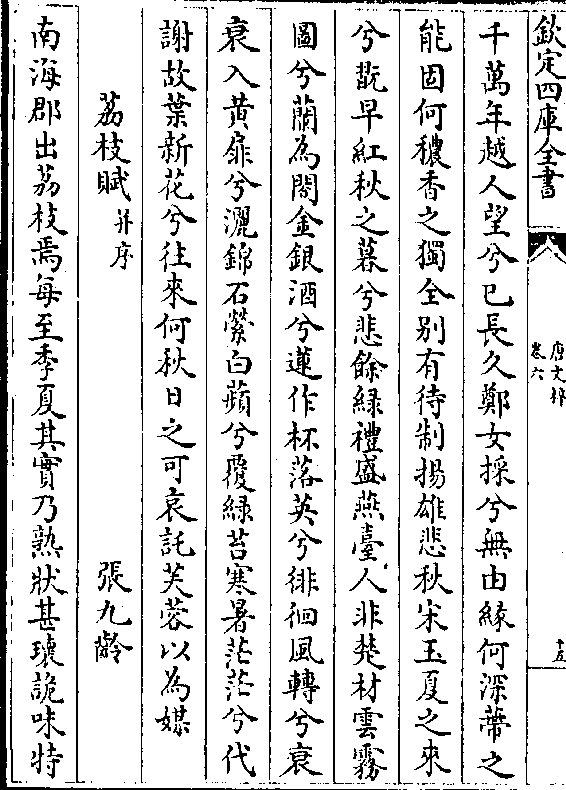 欽定四庫全書
唐文粹
卷六
十五
千萬年越人望兮已長久鄭女採兮無由緣何深蔕之
能固何穠香之獨全别有待制揚雄悲秋宋玉夏之來
兮翫早紅秋之暮兮悲餘緑禮盛燕臺人非楚材雲霧
圖兮蘭為閣金銀酒兮蓮作杯落英兮徘徊風轉兮衰
衰入黄扉兮灑錦石縈白蘋兮覆緑苔寒暑茫茫兮代
謝故葉新花兮往來何秋日之可哀託芙蓉以為媒
荔枝賦并序
張九齡
南海郡出荔枝焉每至季夏其實乃熟狀甚瓌詭味特